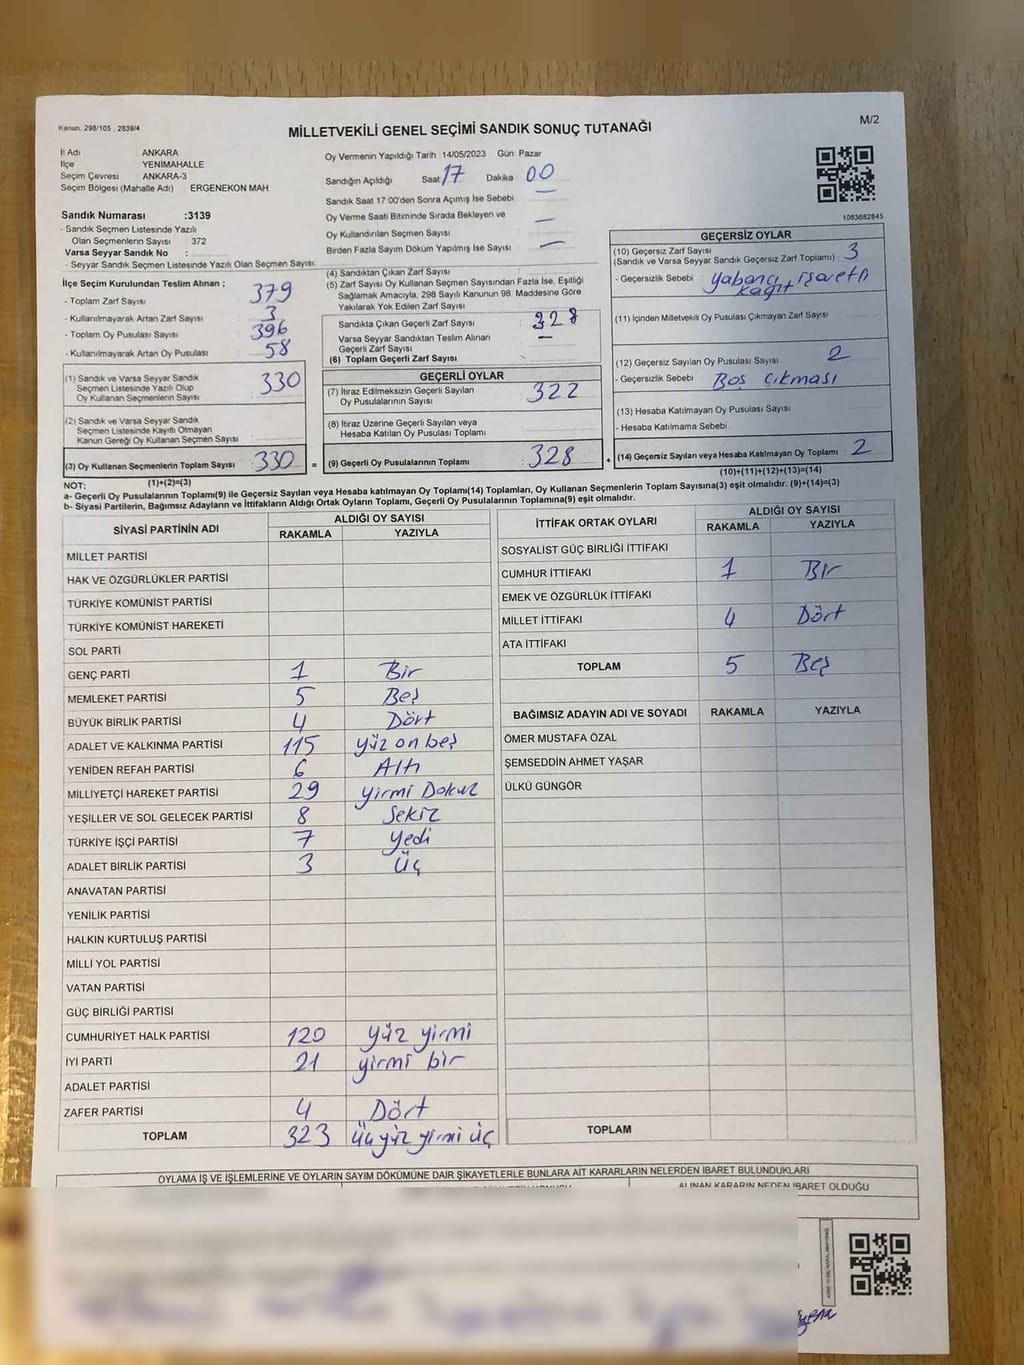 Kanun. 298/105 , 2839/4
M/2
MİLLETVEKİLİ GENEL SEÇİMİ SANDIK SONUÇ TUTANAĞI
İl Adı ANKARA
İlçe YENİMAHALLE
Seçim Çevresi ANKARA-3
Seçim Bölgesi (Mahalle Adı) ERGENEKON MAH
Sandık Numarası :3139
- Sandık Seçmen Listesinde Yazılı
Olan Seçmenlerin Sayısı : 372
Varsa Seyyar Sandık No :
- Seyyar Sandık Seçmen Listesinde Yazılı Olan Seçmen Sayısı:
İlçe Seçim Kurulundan Teslim Alınan ;
- Toplam Zarf Sayısı 379
- Kullanılmayarak Artan Zarf Sayısı 3
- Toplam Oy Pusulası Sayısı 396
- Kullanılmayarak Artan Oy Pusulası 58
(1) Sandık ve Varsa Seyyar Sandık
Seçmen Listesinde Yazılı Olup
Oy Kullanan Seçmenlerin Sayısı 330
(2) Sandık ve Varsa Seyyar Sandık
Seçmen Listesinde Kayıtlı Olmayan
Kanun Gereği Oy Kullanan Seçmen Sayısı
(3) Oy Kullanan Seçmenlerin Toplam Sayısı 330 =
(1)+(2)=(3)
Oy Vermenin Yapıldığı Tarih 14/05/2023 Gün: Pazar
Sandığın Açıldığı Saat 17 Dakika 00
Sandık Saat 17:00'den Sonra Açımış İse Sebebi —
Oy Verme Saati Bitiminde Sırada Bekleyen ve
Oy Kullandırılan Seçmen Sayısı —
Birden Fazla Sayım Döküm Yapılmış İse Sayısı —
(4) Sandıktan Çıkan Zarf Sayısı
(5) Zarf Sayısı Oy Kullanan Seçmen Sayısından Fazla İse, Eşitliği
Sağlamak Amacıyla, 298 Sayılı Kanunun 98. Maddesine Göre
Yakılarak Yok Edilen Zarf Sayısı
Sandıkta Çıkan Geçerli Zarf Sayısı 328
Varsa Seyyar Sandıktan Teslim Alınan
Geçerli Zarf Sayısı —
(6) Toplam Geçerli Zarf Sayısı
GEÇERLİ OYLAR
(7) İtiraz Edilmeksizin Geçerli Sayılan
Oy Pusulalarının Sayısı 322
(8) İtiraz Üzerine Geçerli Sayılan veya
Hesaba Katılan Oy Pusulası Toplamı
(9) Geçerli Oy Pusulalarının Toplamı 328 +
1083682845
GEÇERSİZ OYLAR
(10) Geçersiz Zarf Sayısı 3
(Sandık ve Varsa Seyyar Sandık Geçersiz Zarf Toplamı)
- Geçersizlik Sebebi Yabancı işaretli
kağıt
(11) İçinden Milletvekili Oy Pusulası Çıkmayan Zarf Sayısı
(12) Geçersiz Sayılan Oy Pusulası Sayısı 2
- Geçersizlik Sebebi Boş çıkması
(13) Hesaba Katılmayan Oy Pusulası Sayısı
- Hesaba Katılmama Sebebi
(14) Geçersiz Sayılan veya Hesaba Katılmayan Oy Toplamı 2
(10)+(11)+(12)+(13)=(14)
NOT:
a- Geçerli Oy Pusulalarının Toplamı(9) ile Geçersiz Sayılan veya Hesaba katılmayan Oy Toplamı(14) Toplamları, Oy Kullanan Seçmenlerin Toplam Sayısına(3) eşit olmalıdır. (9)+(14)=(3)
b- Siyasi Partilerin, Bağımsız Adayların ve İttifakların Aldığı Ortak Oyların Toplamı, Geçerli Oy Pusulalarının Toplamına(9) eşit olmalıdır.
SİYASİ PARTİNİN ADI ALDIĞI OY SAYISI
RAKAMLA YAZIYLA
MİLLET PARTİSİ
HAK VE ÖZGÜRLÜKLER PARTİSİ
TÜRKİYE KOMÜNİST PARTİSİ
TÜRKİYE KOMÜNİST HAREKETİ
SOL PARTİ
GENÇ PARTİ 1 Bir
MEMLEKET PARTİSİ 5 Beş
BÜYÜK BİRLİK PARTİSİ 4 Dört
ADALET VE KALKINMA PARTİSİ 115 yüz on beş
YENİDEN REFAH PARTİSİ 6 Altı
MİLLİYETÇİ HAREKET PARTİSİ 29 yirmi Dokuz
YEŞİLLER VE SOL GELECEK PARTİSİ 8 Sekiz
TÜRKİYE İŞÇİ PARTİSİ 7 Yedi
ADALET BİRLİK PARTİSİ 3 Üç
ANAVATAN PARTİSİ
YENİLİK PARTİSİ
HALKIN KURTULUŞ PARTİSİ
MİLLİ YOL PARTİSİ
VATAN PARTİSİ
GÜÇ BİRLİĞİ PARTİSİ
CUMHURİYET HALK PARTİSİ 120 yüz yirmi
İYİ PARTİ 21 yirmi bir
ADALET PARTİSİ
ZAFER PARTİSİ 4 Dört
TOPLAM 323 Üçyüz yirmi üç
İTTİFAK ORTAK OYLARI ALDIĞI OY SAYISI
RAKAMLA YAZIYLA
SOSYALİST GÜÇ BİRLİĞİ İTTİFAKI
CUMHUR İTTİFAKI 1 Bir
EMEK VE ÖZGÜRLÜK İTTİFAKI
MİLLET İTTİFAKI 4 Dört
ATA İTTİFAKI
TOPLAM 5 Beş
BAĞIMSIZ ADAYIN ADI VE SOYADI RAKAMLA YAZIYLA
ÖMER MUSTAFA ÖZAL
ŞEMSEDDİN AHMET YAŞAR
ÜLKÜ GÜNGÖR
TOPLAM
OYLAMA İŞ VE İŞLEMLERİNE VE OYLARIN SAYIM DÖKÜMÜNE DAİR ŞİKAYETLERLE BUNLARA AİT KARARLARIN NELERDEN İBARET BULUNDUKLARI
ALINAN KARARIN NEDEN İBARET OLDUĞU